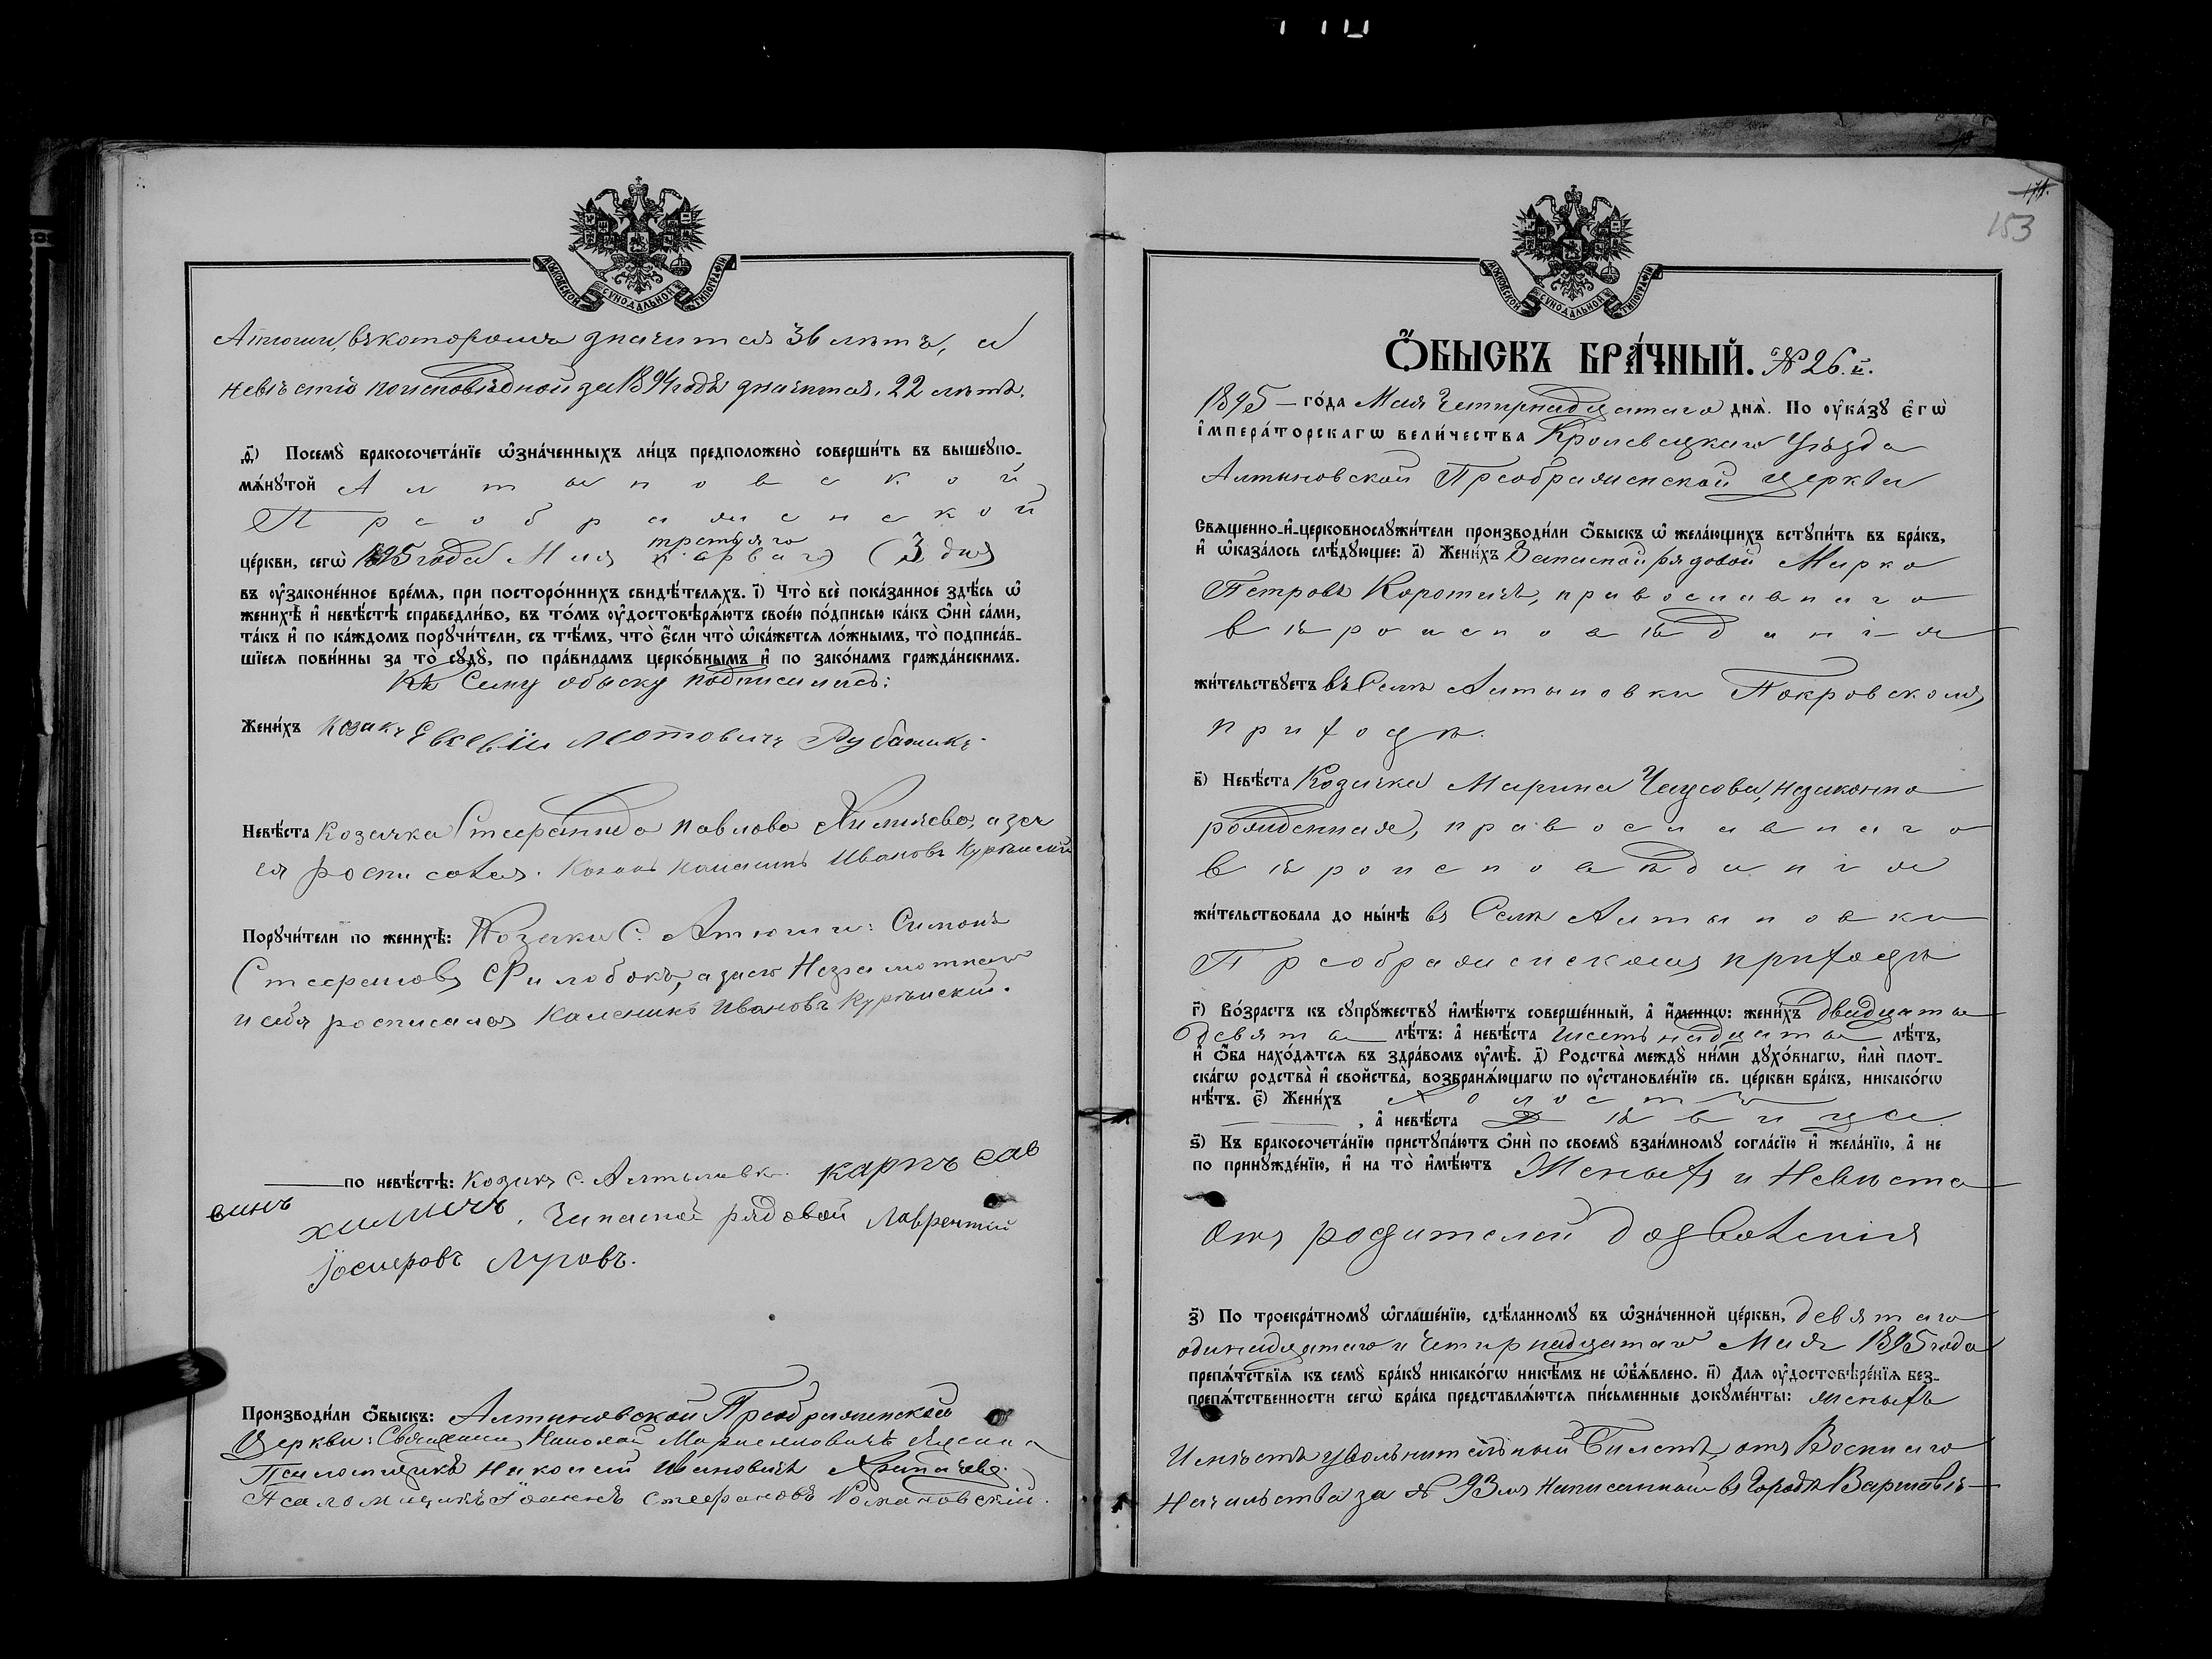 МОСКОВСКОЙ СѴНОДАЛЬНОЙ ТИПОГРАФІИ
Атюши, въ которомъ значится 36 лѣтъ, а
невѣстѣ по исповѣдной за 1894 годъ значится 22 лѣтъ.
д҃) Посемꙋ̀ бракосочета́нїе ѡ҆зна́ченныхъ ли́цъ предположено̀ соверши́ть въ вышеꙋпо-
мѧ́нꙋтой Алтыновской
Преображенской
третьяго
це́ркви, сегѡ̀ 1895 года Мая (3 дня)
въ ᲂу҆законе́нное вре́мѧ, при посторо́ннихъ свидѣ́телѧхъ. і҃) Что̀ всѐ пока́занное здѣ́сь ѡ҆
женихѣ̀ и҆ невѣ́стѣ справедли́во, въ то́мъ ᲂу҆достовѣрѧ́ютъ свое́ю по́дписью ка́къ ѻ҆нѝ са́ми,
та́къ и҆ по ка́ждомъ порꙋчи́тели, съ тѣ́мъ, что̀ є҆́сли что̀ ѡ҆ка́жетсѧ ло́жнымъ, то̀ подписа́в-
шїесѧ пови́нны за то̀ сꙋдꙋ̀, по пра́виламъ церко́внымъ и҆ по зако́намъ гражда́нскимъ.
Къ сему обыску подписались:
Жени́хъ козакъ Евсевїи Мотовичъ Рубашикъ
Невѣ́ста Козачка Стефанида Павлова Химичева, а за нее
росписался. Козакъ Каленикъ Ивановъ Курѣнскій
Порꙋчи́тели по женихѣ̀: Козаки С. Атюши: Симонъ
Стефановъ Филобокъ, а за него неграмотнаго
и себя росписался Каленикъ Ивановъ Курѣнский.
по невѣ́стѣ: Козакъ с. Алтыновки Карпъ Сав
винъ Химичъ, Запасной рядовой Лаврентий
Іосифовъ Луговъ.
Производи́ли ѻ҆́быскъ: Алтыновской Преображенской
Церкви: Священникъ Николай
Псаломщикъ Николай Ивановичъ
Псаломщикъ Іоаннъ Стефановъ Романовскій.
153
МОСКОВСКОЙ СѴНОДАЛЬНОЙ ТИПОГРАФІИ
Ѻ҆́БЫСКЪ БРА́ЧНЫЙ. № 26.й.
1895 – го́да Мая Четырнадцатаго днѧ̀. По ᲂу҆ка́зꙋ є҆гѡ̀
і҆мпера́торскагѡ вели́чества Кролевецкаго Уѣзда
Алтыновской Преображенской церкви
Свѧще́нно-и҆-церковнослꙋжи́тели производи́ли ѻ҆́быскъ ѡ҆ жела́ющихъ встꙋпи́ть въ бра́къ,
и҆ ѡ҆каза́лось слѣ́дꙋющее: а҃) Жени́хъ Запасной рядовой Марко
Петровъ Коротичъ, православнаго
вѣроисповѣданія
жи́тельствꙋетъ въ Селѣ Алтыновки Покровскомъ
приходѣ.
в҃) Невѣ́ста Козачка Марина Чаусова, незаконно
рожденная, православнаго
вѣроисповѣданія
жи́тельствовала до ны́нѣ въ Селѣ Алтыновки
Преображенскомъ приходѣ
г҃) Во́зрастъ къ сꙋпрꙋ́жествꙋ и҆мѣ́ютъ соверше́нный, а҆ и҆́меннѡ: жени́хъ двадцати
девяти лѣ́тъ: а҆ невѣ́ста шестнадцати лѣ́тъ,
и҆ ѻ҆́ба нахо́дѧтсѧ въ здра́вомъ ᲂу҆мѣ̀. д҃) Родства̀ междꙋ̀ ни́ми дꙋхо́внагѡ, и҆лѝ плот-
ска́гѡ родства̀ и҆ сво́йства, возбранѧ́ющагѡ по ᲂу҆становле́нїю св. це́ркви бра́къ, никако́гѡ
нѣ́тъ. є҃) Жени́хъ Холостъ
, а҆ невѣ́ста Дѣвица
ѕ҃) Къ бракосочета́нїю пристꙋпа́ютъ ѻ҆нѝ по своемꙋ̀ взаи́мномꙋ согла́сїю и҆ жела́нїю, а҆ не
по принꙋжде́нїю, и҆ на то̀ и҆мѣ́ютъ Женихъ и Невѣста
Отъ родителей дозволенія
з҃) По троекра́тномꙋ ѡ҆глаше́нїю, сдѣ́ланномꙋ въ ѡ҆зна́ченной це́ркви, девятаго
одинадцатаго и Четырнадцатаго Мая 1895 года
препѧ́тствїѧ къ семꙋ̀ бра́кꙋ никако́гѡ никѣ́мъ не ѡ҆б̾ѧ́влено. и҃) Длѧ ᲂу҆достовѣре́нїѧ без-
препѧ́тственности сегѡ̀ бра́ка представлѧ́ютсѧ пи́сьменные докꙋме́нты: женихъ
Имѣетъ увольнительный Билетъ, отъ Военнаго
Начальства за № 93мъ Написанный въ Городѣ Варшавѣ